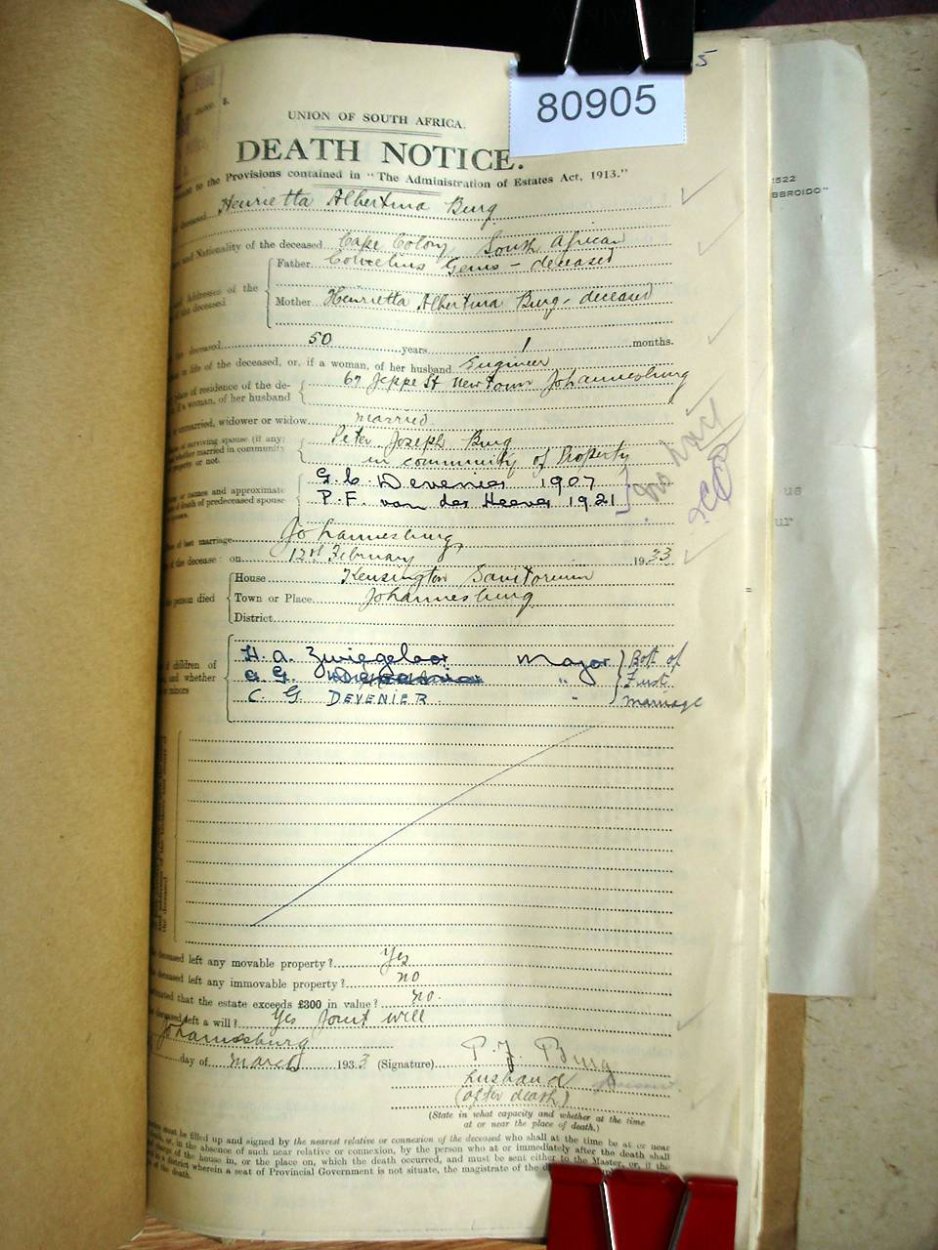 5
80905
UNION OF SOUTH AFRICA.
DEATH NOTICE.
to the Provisions contained in "The Administration of Estates Act, 1913."
deceased Henrietta Albertina Burg
and Nationality of the deceased Cape Colony South African
Father Cornelius Gems - deceased
Addresses of the
the deceased
Mother Henrietta Albertina Burg - deceased
deceased 50 years 1 months.
in life of the deceased, or, if a woman, of her husband Engineer
place of residence of the de-
if a woman, of her husband
67 Jeppe St New Town Johannesburg
unmarried, widower or widow married
surviving spouse (if any)
whether married in community
property or not.
Peter Joseph Burg
in community of Property
or names and approximate
of death of predeceased spouse
G. C. Devenier 1907
P. F. van der Heever 1921
of last marriage Johannesburg
of the decease: on 12th February 1933
person died
House Kensington Sanitorium
Town or Place Johannesburg
District
children of
and whether
minors
H. A. Zwiegelaar Major
G. G.
C G DEVENIER "
Both of
First
marriage
deceased left any movable property? Yes
deceased left any immovable property? no
estimated that the estate exceeds £300 in value? no.
deceased left a will? Yes Joint will
Johannesburg
day of March 1933 (Signature) P. J. Burg
husband
(after death)
(State in what capacity and whether at the time
at or near the place of death.)
must be filled up and signed by the nearest relative or connexion of the deceased who shall at the time be at or near
or, in the absence of such near relative or connexion, by the person who at or immediately after the death shall
charge of the house in, or the place on, which the death occurred, and must be sent either to the Master, or, if the
a district wherein a seat of Provincial Government is not situate, the magistrate of the
of the death.